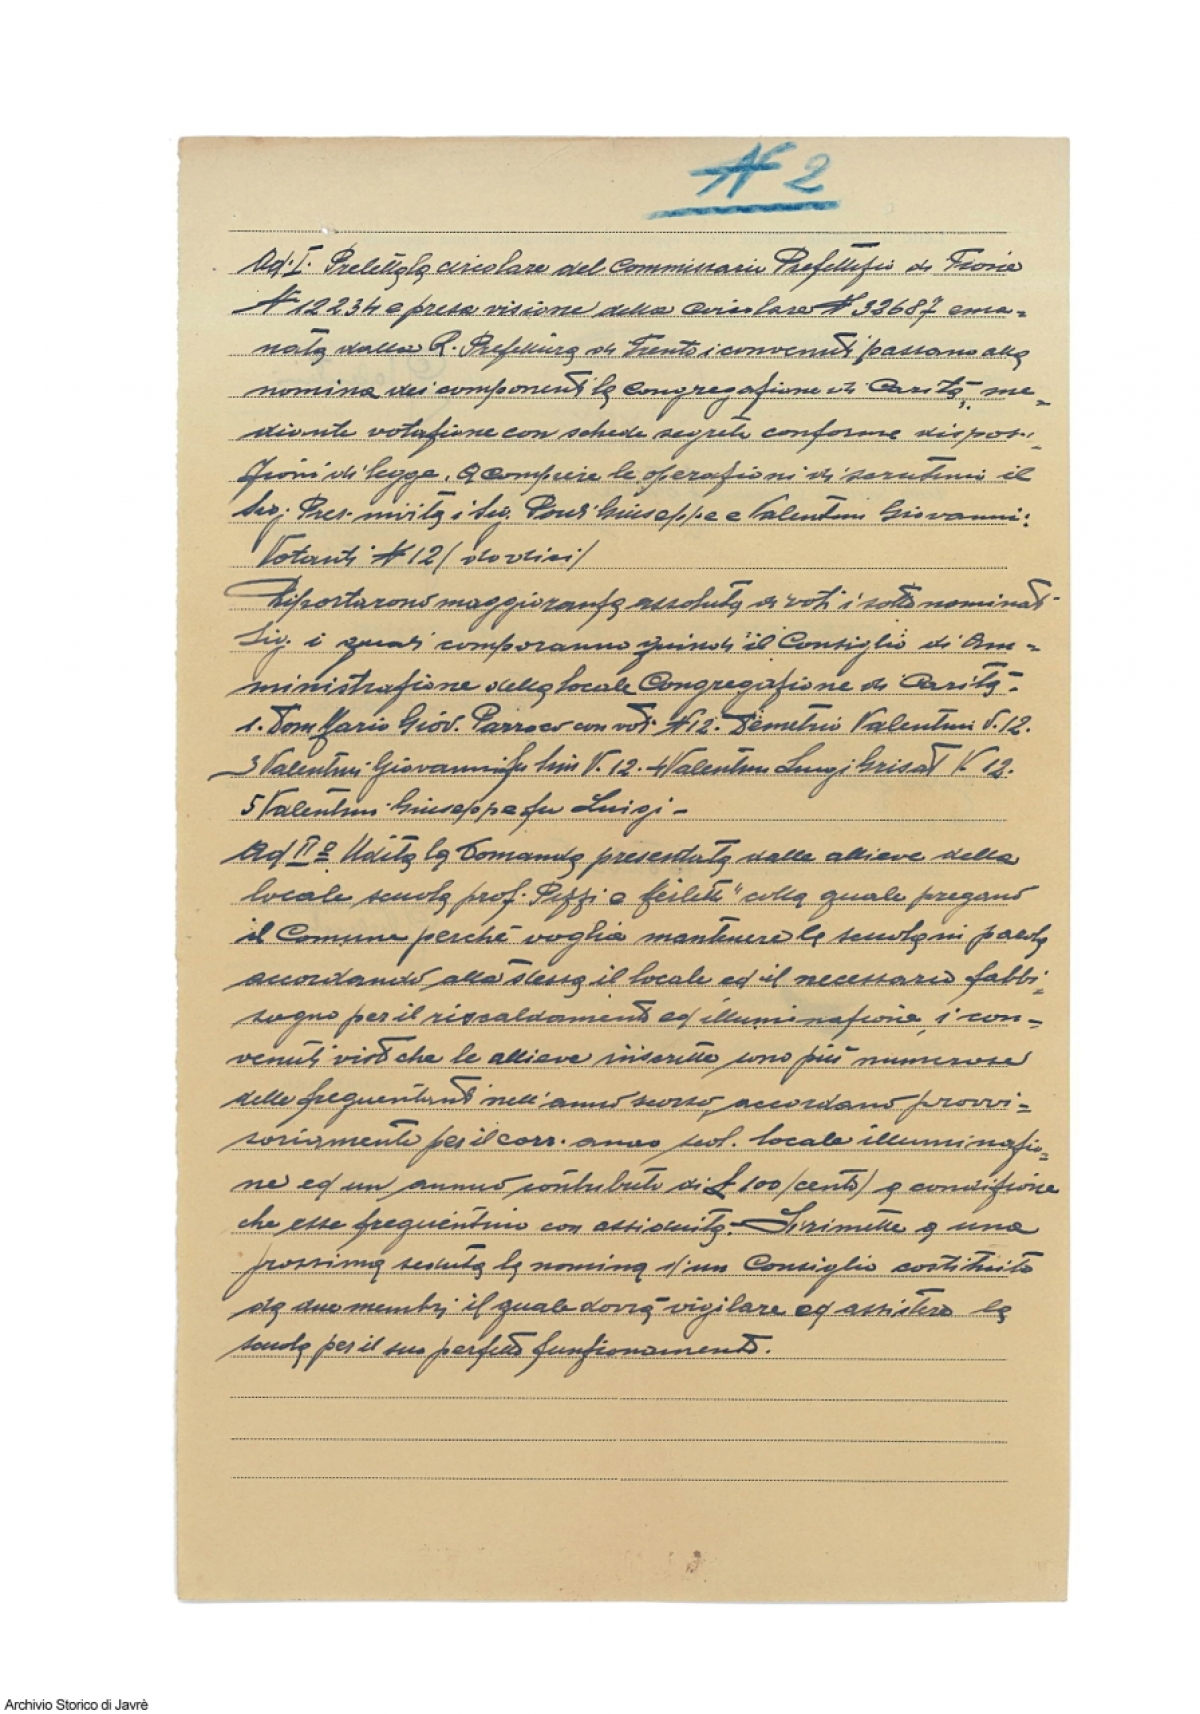 N 2
Ad. I. Preletta la circolare del Commissario Prefettizio di Tione
N 12234 e presa visione della circolare N 32687 ema-
nata dalla R. Prefettura di Trento i convenuti passano alla
nomina dei componenti la Congregazione di Carità, me-
diante votazione con schede segrete conforme disposi-
zioni di legge. A compiere le operazioni di scrutinio il
Sig. Pres. invita i Sig. Giuseppe e Valentini Giovanni:
Votanti N 12 / dodici /
Riportarono maggioranza assoluta di voti i sotto nominati
Sig. i quali comporanno quindi il Consiglio di Am-
ministrazione della locale Congregazione di Carità.
1. Don Mario Giov. Parroco con voti N 12. Demetrio Valentini V. 12.
3 Valentini Giovanni fu V. 12. 4 Valentini Luigi V. 12.
5 Valentini Giuseppe fu Luigi -
Ad II° Udita la Domanda presentata dalle allieve della
locale scuola prof. Pizzi e Merletti" colla quale pregano
il Comune perché voglia mantenere la scuola in parola
accordando alla stessa il locale ed il necessario fabbi-
sogno per il riscaldamento ed illuminazione, i con-
venuti visto che le allieve inscritte sono più numerose
delle frequentanti nell'anno scorso, accordano provvi-
soriamente per il corr. anno scol. locale illuminazio-
ne ed un annuo contributo di £ 100 /cento/ a condizione
che esse frequentino con assiduità. Si rimette a una
prossima seduta la nomina d'un Consiglio costituito
da due membri il quale dovrà vigilare ed assistere la
scuola per il suo perfetto funzionamento.
Archivio Storico di Javrè